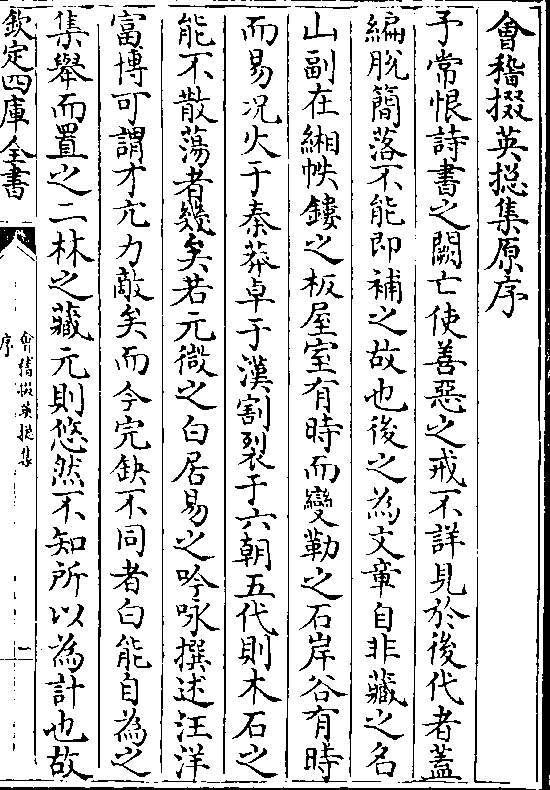 會稽掇英揔集原序
予常恨詩書之闕亡使善惡之戒不詳見於後代者蓋
編脱簡落不能即補之故也後之為文章自非藏之名
山副在緗帙鏤之板屋室有時而變勒之石岸谷有時
而易况火于秦莽卓于漢割裂于六朝五代則木石之
能不散蕩者幾矣若元微之白居易之吟咏撰述汪洋
富博可謂才亢力敵矣而今完缺不同者白能自為之
集舉而置之二林之藏元則悠然不知所以為計也故
欽定四庫全書
會稽掇英揔集
序
一